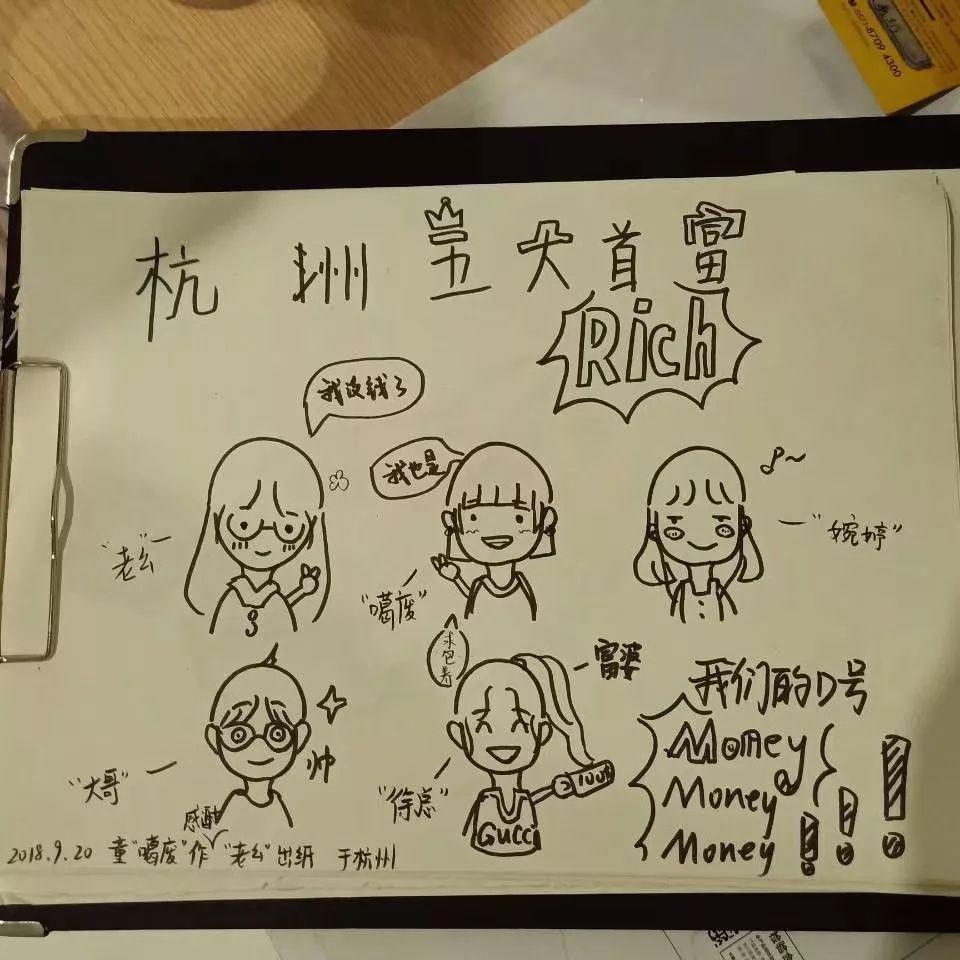 0571-8709 4300
杭州五大首富
Rich
我没钱了
我也是
"老幺"
"噶废"
"婉婷"
求包养
富婆
"大哥"
帅
"徐总"
100%
Gucci
我们的口号
Money
Money
Money!!!
感谢
2018.9.20 童"噶废"作 "老幺"出纸 于杭州